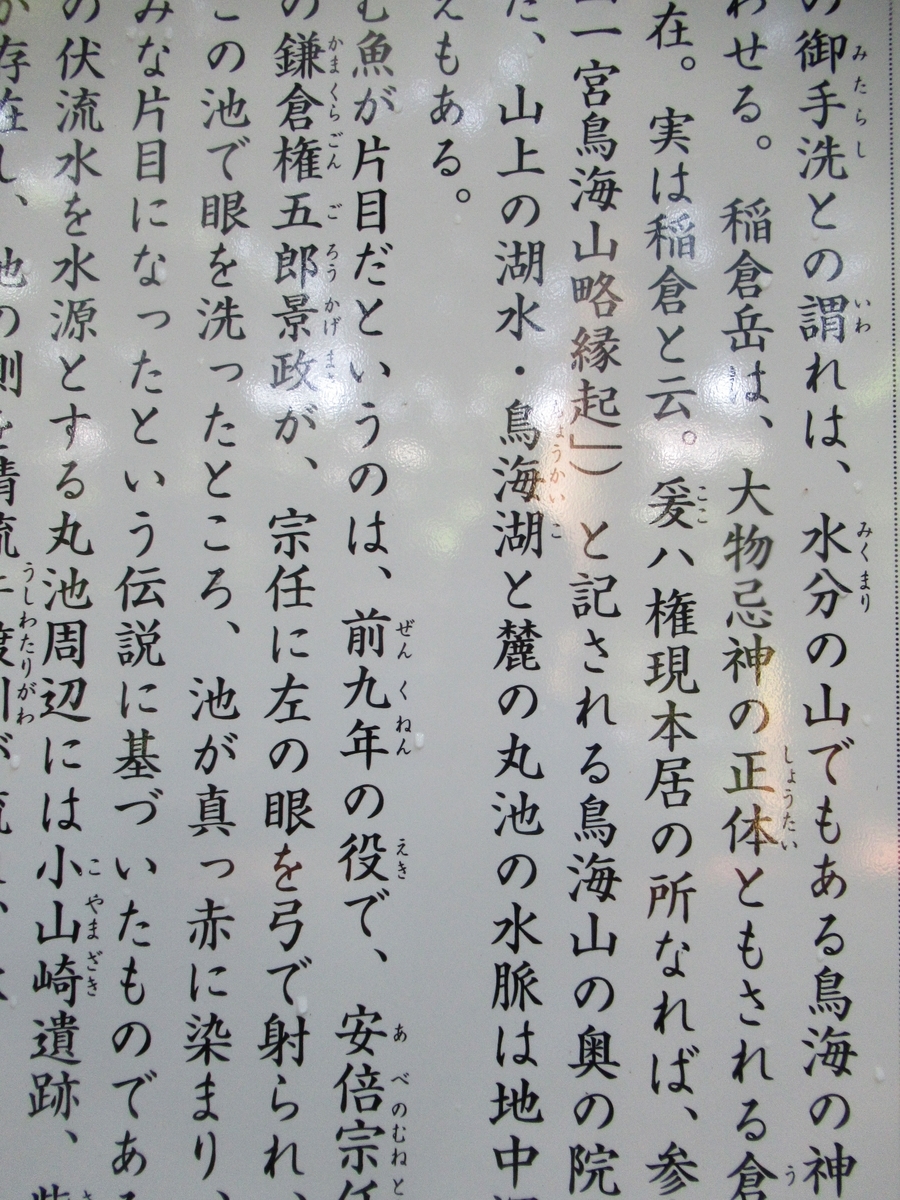 の御手洗との謂れは、水分の山でもある鳥海の神
わせる。稲倉岳は、大物忌神の正体ともされる倉
在。実は稲倉と云。爰ハ権現本居の所なれば、参
一宮鳥海山略縁起」）と記される鳥海山の奥の院
た、山上の湖水・鳥海湖と麓の丸池の水脈は地中
えもある。
む魚が片目だというのは、前九年の役で、安倍宗任
の鎌倉権五郎景政が、宗任に左の眼を弓で射られ、
この池で眼を洗ったところ、池が真っ赤に染まり、
みな片目になったという伝説に基づいたものである
の伏流水を水源とする丸池周辺には小山崎遺跡、